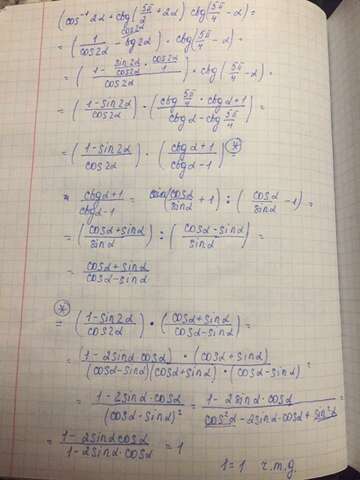 (cos⁻¹2α + ctg(5π/2 + 2α) ctg(5π/4 − α) =
= (1/cos2α − tg2α) · ctg(5π/4 − α) =
= (1 − sin2α/cos2α · cos2α/1)/cos2α · ctg(5π/4 − α) =
= (1−sin2α/cos2α) · (ctg 5π/4 · ctgα+1/ctgα − ctg 5π/4) =
= (1−sin2α/cos2α) · (ctgα+1/ctgα−1) *
* ctgα+1/ctgα−1 = (cosα/sinα + 1) : (cosα/sinα − 1) =
= (cosα+sinα/sinα) : (cosα−sinα/sinα) =
= cosα+sinα/cosα−sinα
*
= (1−sin2α/cos2α) · (cosα+sinα/cosα−sinα) =
= (1−2sinα·cosα) · (cosα+sinα)/(cosα−sinα)(cosα+sinα) · (cosα−sinα) =
= 1−2sinα·cosα/(cosα−sinα)² = 1−2sinα·cosα/cos²α−2sinα·cosα+sin²α =
= 1−2sinα cosα/1−2sinα·cosα = 1
1=1 ч.т.д.